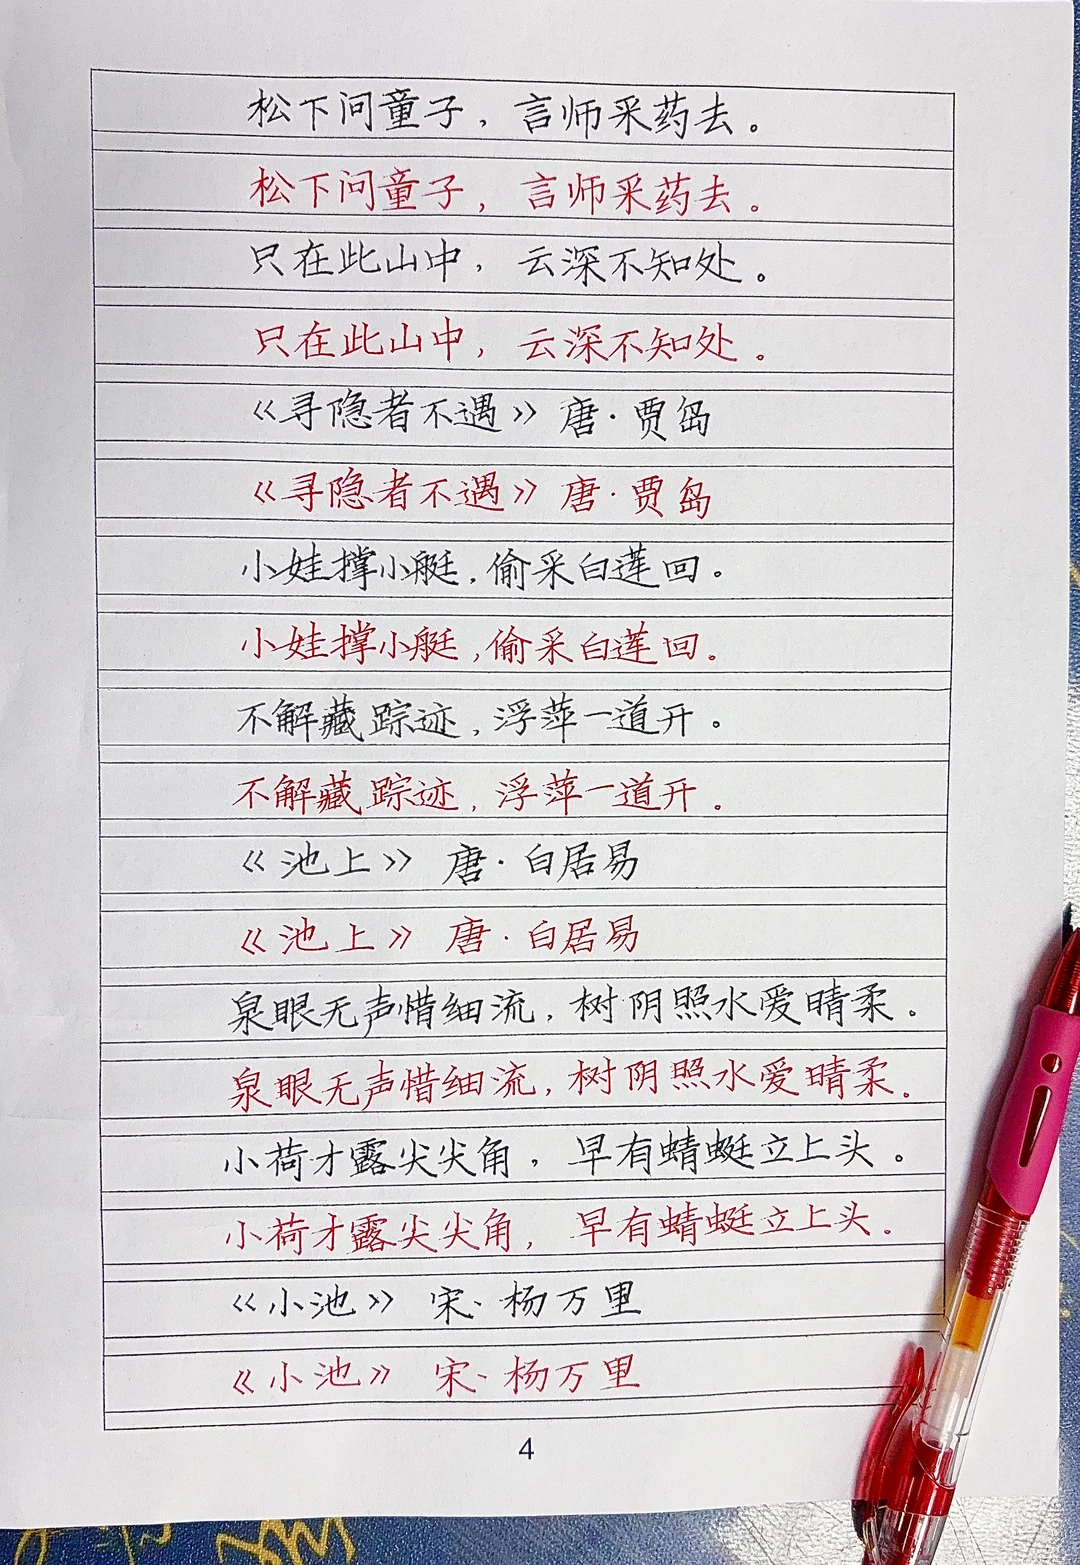 松下问童子，言师采药去。
松下问童子，言师采药去。
只在此山中，云深不知处。
只在此山中，云深不知处。
《寻隐者不遇》唐·贾岛
《寻隐者不遇》唐·贾岛
小娃撑小艇，偷采白莲回。
小娃撑小艇，偷采白莲回。
不解藏踪迹，浮萍一道开。
不解藏踪迹，浮萍一道开。
《池上》唐·白居易
《池上》唐·白居易
泉眼无声惜细流，树阴照水爱晴柔。
泉眼无声惜细流，树阴照水爱晴柔。
小荷才露尖尖角，早有蜻蜓立上头。
小荷才露尖尖角，早有蜻蜓立上头。
《小池》宋、杨万里
《小池》宋、杨万里
4